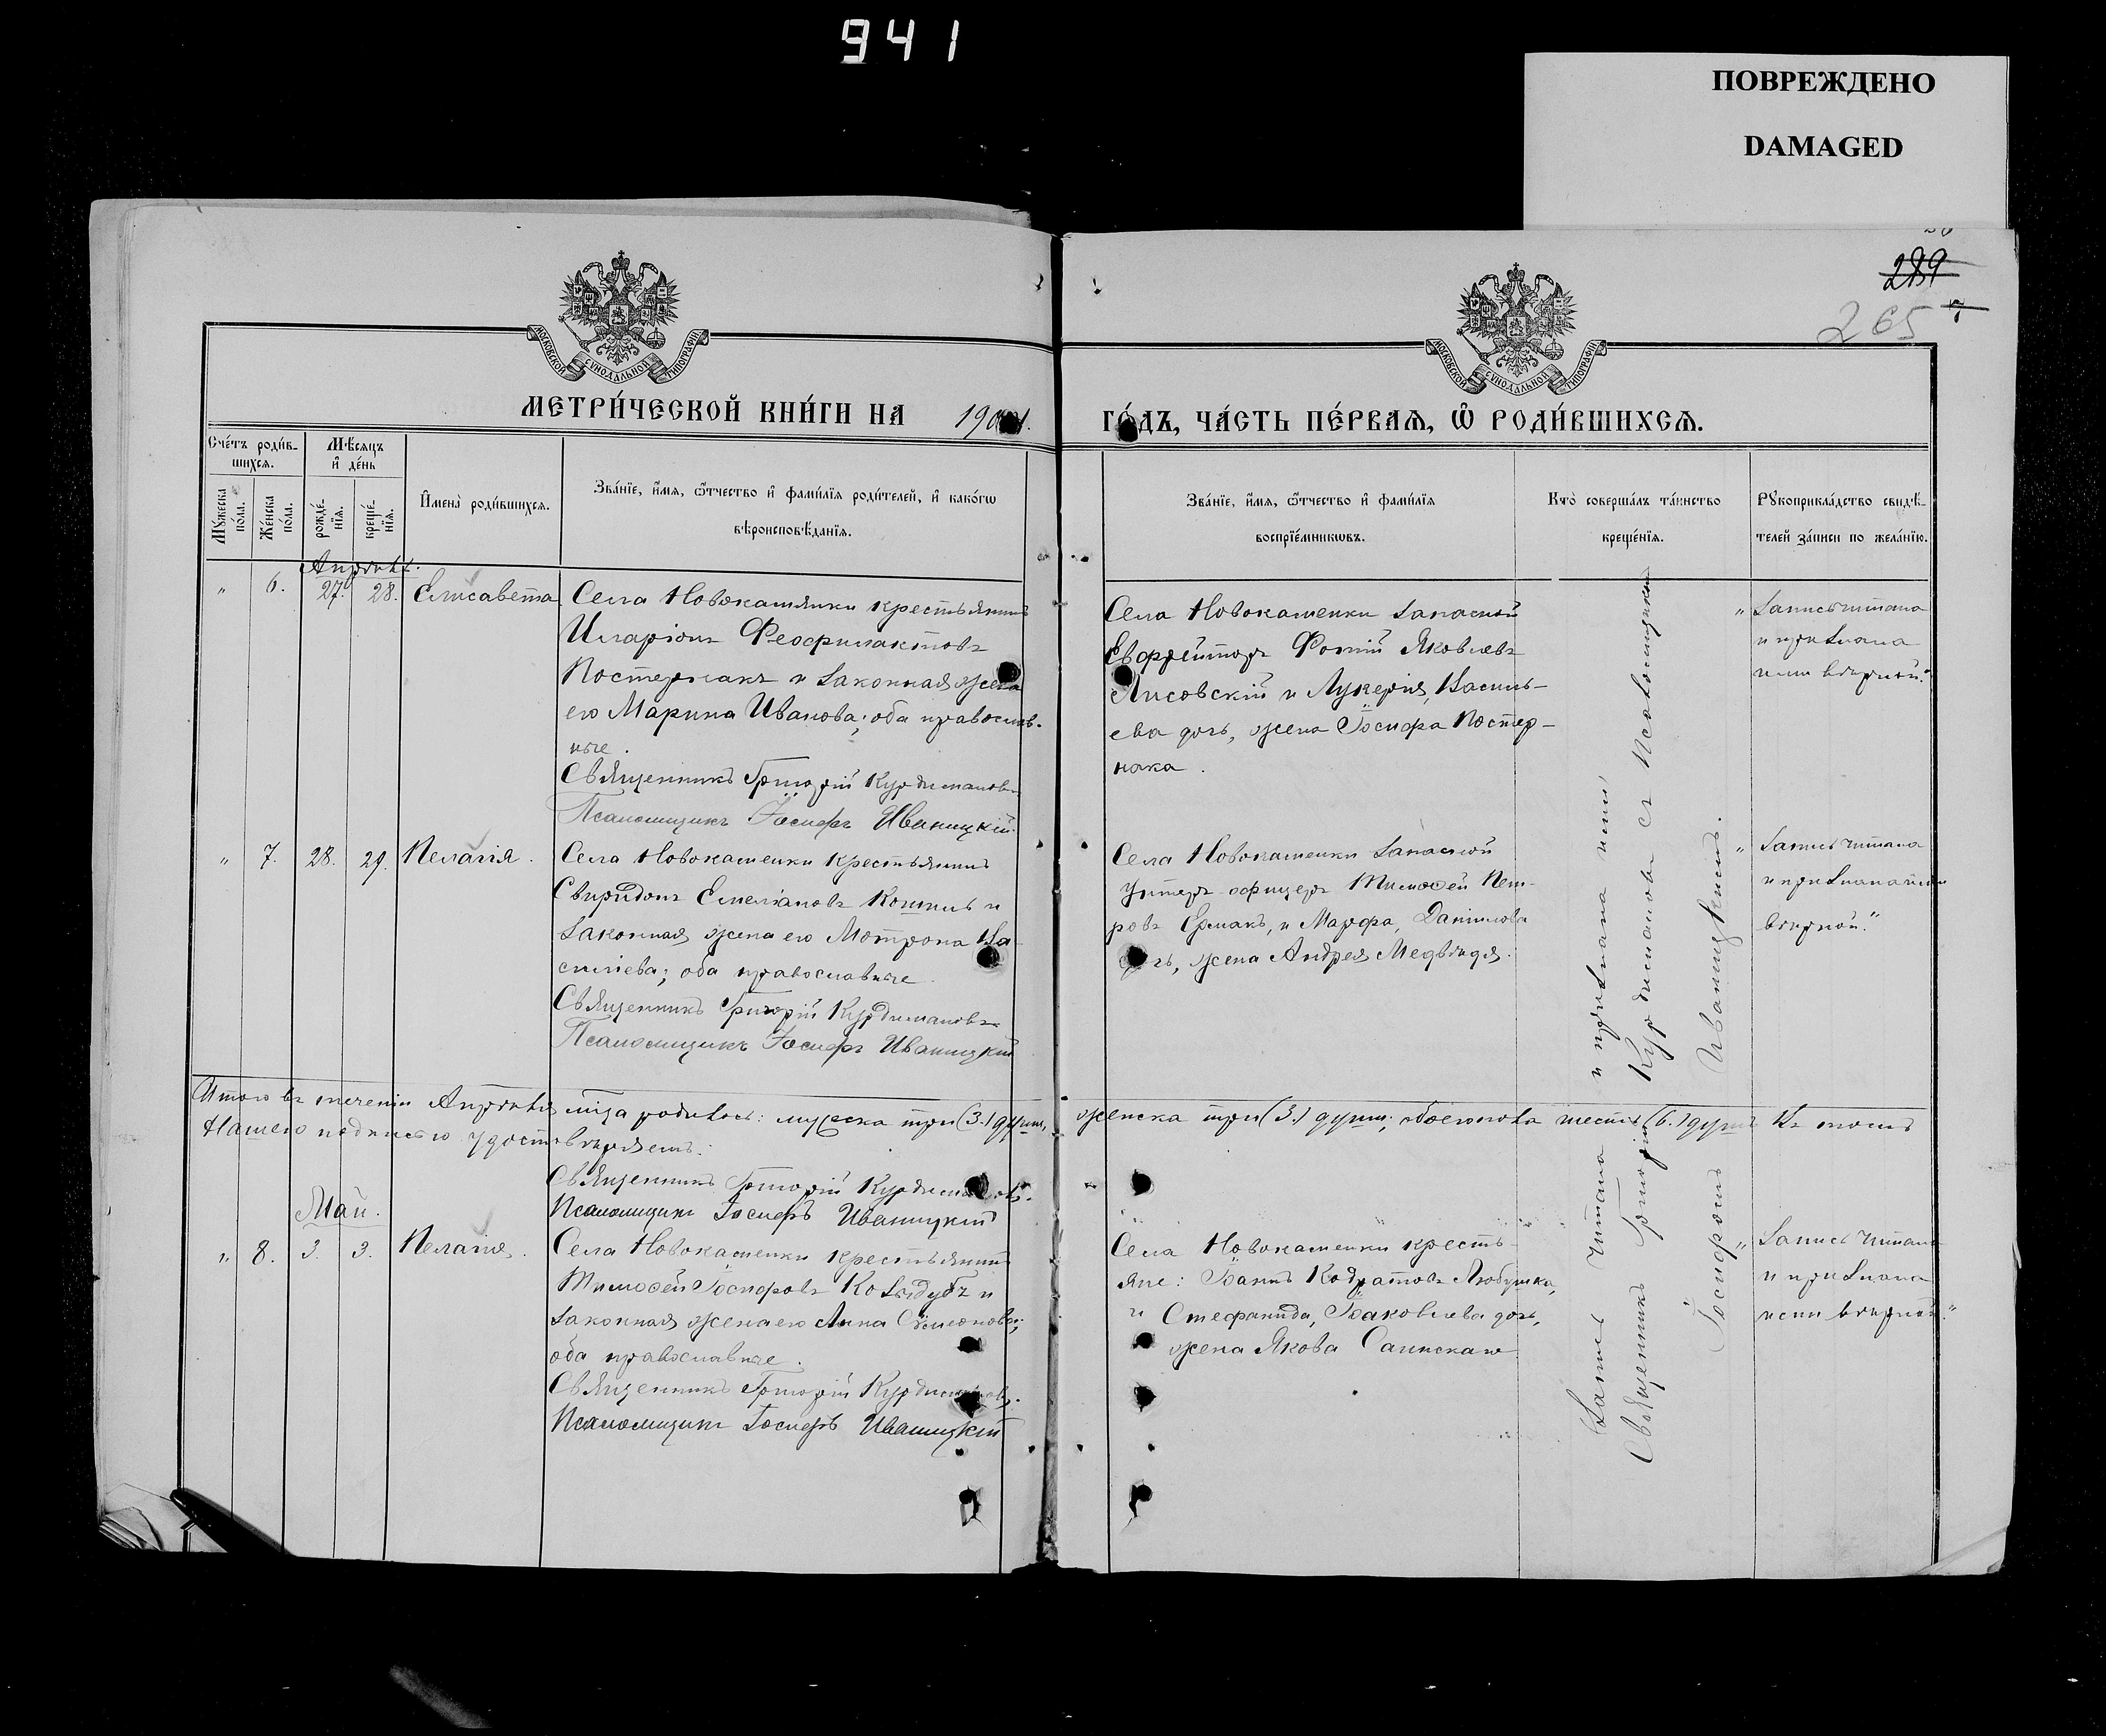 941
ПОВРЕЖДЕНО
DAMAGED
289
265
МОСКОВСКОЙ СѴНОДАЛЬНОЙ ТИПОГРАФІИ
МОСКОВСКОЙ СѴНОДАЛЬНОЙ ТИПОГРАФІИ
МЕТРИ́ЧЕСКОЙ КНИ́ГИ НА 190
ГО́ДЪ, ЧА́СТЬ ПЕ́РВАѦ, Ѿ РОДИ́ВШИХСѦ.
Сче́тъ роди́в-
шихсѧ.
Мꙋ́жеска по́ла.
Же́нска по́ла.
Мѣ́сѧцъ
и҆ де́нь
рожде́-
нїѧ.
креще́-
нїѧ.
И҆мена̀ роди́вшихсѧ.
Зва́нїе, и҆́мѧ, ѻ҆́тчество и҆ фамѝлїѧ роди́телей, и҆ како́гѡ
вѣроисповѣ́данїѧ.
Зва́нїе, и҆́мѧ, ѻ҆́тчество и҆ фамѝлїѧ
воспрїе́мникѡвъ.
Кто̀ соверша́лъ та́инство
креще́нїѧ.
Рꙋкоприкла́дство свидѣ́-
телей за́писи по жела́нїю.
Апрѣль.
" 6. 27. 28. Елисавета
Села Новокаменки крестьянинъ
Иларіонъ Феофилактовъ
Постернакъ и законная жена
его Марина Иванова; оба православ-
ные.
Священникъ Григорій Курдимановъ
Псаломщикъ Іосифъ Иваницкій
Села Новокаменки запасной
Ефрейторъ Фотій Яковлевъ
Лисовскій и Лукерія, Василь-
ева дочь, жена Іосифа Постер-
нака.
"Запись читана
и признана
нами вѣрной."
" 7. 28. 29. Пелагія.
Села Новокаменки крестьянинъ
Свиридонъ Емеліановъ Кошиль и
законная жена его Мотрона Ва-
силіева; оба православные.
Священникъ Григорій Курдимановъ
Псаломщикъ Іосифъ Иваницкій
Села Новокаменки запасной
Унтеръ-офицеръ Тимофей Пет-
ровъ Ермакъ, и Марфа, Данилова
дочь, жена Андрея Медвѣдя.
"Запись читана
и признана нами
вѣрной."
Итого въ теченіи Апрѣля мѣца родилось: мужеска три (3.) души, женска три (3.) души, обоего пола шесть (6.) душъ Въ томъ
Нашею подписью удостовѣряемъ:
Священникъ Григорій Курдимановъ.
Псаломщикъ Іосифъ Иваницкій
Май.
" 8. 3. 3. Пелагія.
Села Новокаменки крестьянинъ
Тимофей Іосифовъ Козыдубъ и
законная жена его Анна Симонова;
оба православные.
Священникъ Григорій Курдимановъ.
Псаломщикъ Іосифъ Иваницкій
Села Новокаменки кресть-
яне: Іоаннъ Кодратовъ Любушка,
и Стефанида, Іаковлева дочь,
жена Якова Салинскаго
"Запись читана
и признана
нами вѣрной."
Запись читана и признана нами,
Священникъ Григорій Курдимановъ съ Псаломщикомъ
Іосифомъ Иваницкимъ.